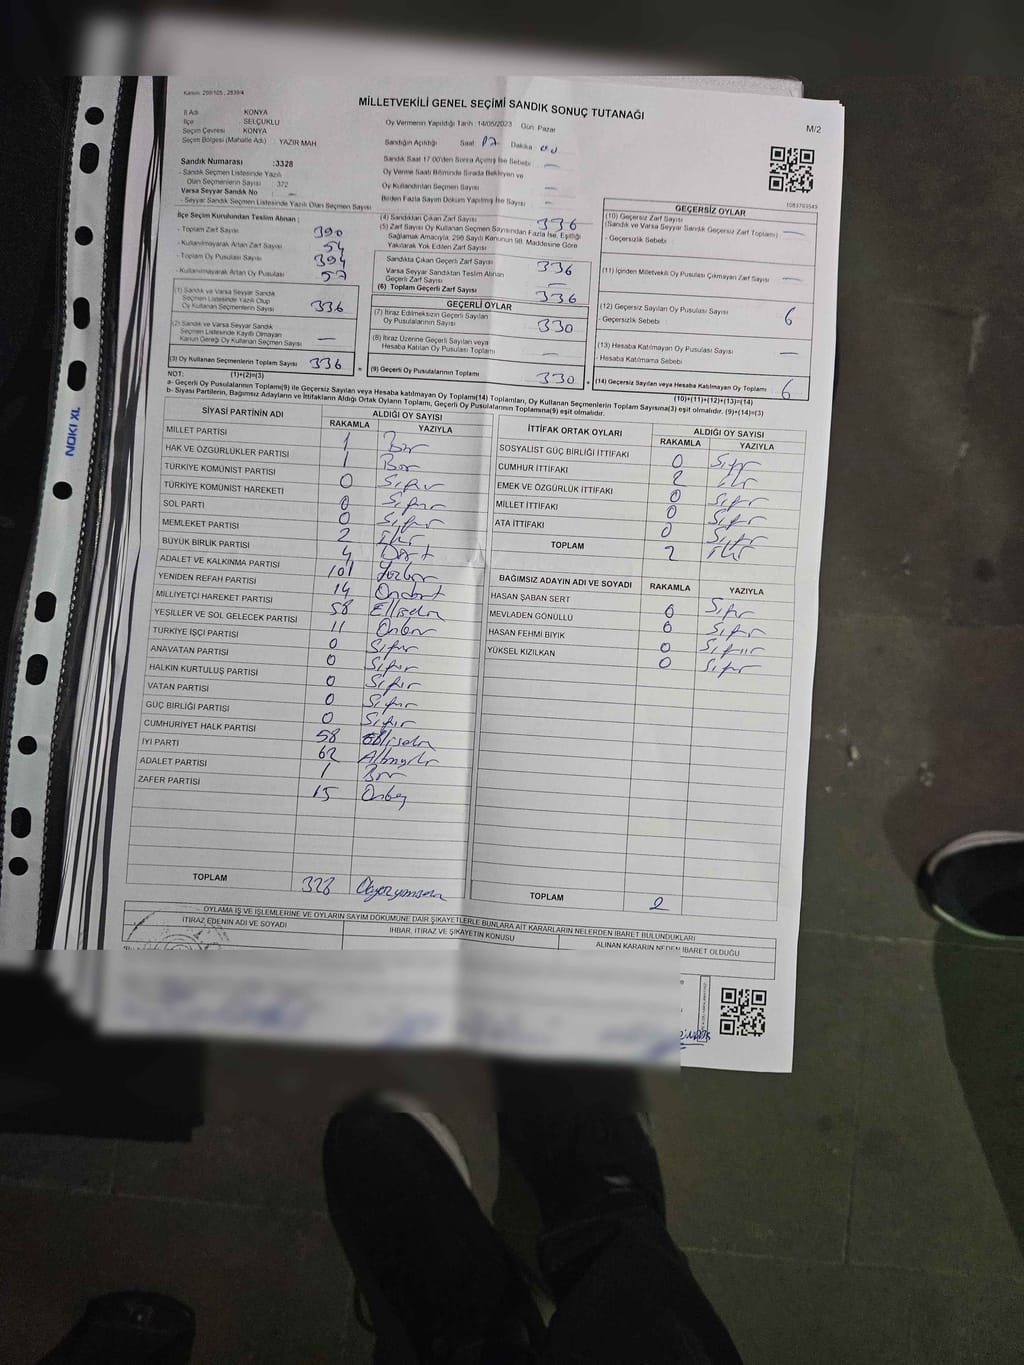 Kanun: 298/105 , 2839/4
MİLLETVEKİLİ GENEL SEÇİMİ SANDIK SONUÇ TUTANAĞI
M/2
İl Adı KONYA
İlçe SELÇUKLU
Seçim Çevresi KONYA
Seçim Bölgesi (Mahalle Adı) : YAZIR MAH
Oy Vermenin Yapıldığı Tarih : 14/05/2023 Gün Pazar
Sandığın Açıldığı Saat 17 Dakika 00
Sandık Saat 17.00'den Sonra Açılmış İse Sebebi —
Oy Verme Saati Bitiminde Sırada Bekleyen ve
Oy Kullandırılan Seçmen Sayısı —
Birden Fazla Sayım Döküm Yapılmış İse Sayısı —
Sandık Numarası :3328
- Sandık Seçmen Listesinde Yazılı
Olan Seçmenlerin Sayısı 372
Varsa Seyyar Sandık No —
- Seyyar Sandık Seçmen Listesinde Yazılı Olan Seçmen Sayısı
1083763543
İlçe Seçim Kurulundan Teslim Alınan :
- Toplam Zarf Sayısı 390
- Kullanılmayarak Artan Zarf Sayısı 54
- Toplam Oy Pusulası Sayısı 394
- Kullanılmayarak Artan Oy Pusulası 57
(1) Sandık ve Varsa Seyyar Sandık
Seçmen Listesinde Yazılı Olup
Oy Kullanan Seçmenlerin Sayısı 336
(2) Sandık ve Varsa Seyyar Sandık
Seçmen Listesinde Kayıtlı Olmayan
Kanun Gereği Oy Kullanan Seçmen Sayısı —
(3) Oy Kullanan Seçmenlerin Toplam Sayısı 336
(4) Sandıktan Çıkan Zarf Sayısı 336
(5) Zarf Sayısı Oy Kullanan Seçmen Sayısından Fazla İse, Eşitliği
Sağlamak Amacıyla, 298 Sayılı Kanunun 98. Maddesine Göre
Yakılarak Yok Edilen Zarf Sayısı
Sandıkta Çıkan Geçerli Zarf Sayısı 336
Varsa Seyyar Sandıktan Teslim Alınan
Geçerli Zarf Sayısı —
(6) Toplam Geçerli Zarf Sayısı 336
GEÇERLİ OYLAR
(7) İtiraz Edilmeksizin Geçerli Sayılan
Oy Pusulalarının Sayısı 330
(8) İtiraz Üzerine Geçerli Sayılan veya
Hesaba Katılan Oy Pusulası Toplamı —
= (9) Geçerli Oy Pusulalarının Toplamı 330
GEÇERSİZ OYLAR
(10) Geçersiz Zarf Sayısı
(Sandık ve Varsa Seyyar Sandık Geçersiz Zarf Toplamı) —
- Geçersizlik Sebebi :
(11) İçinden Milletvekili Oy Pusulası Çıkmayan Zarf Sayısı —
(12) Geçersiz Sayılan Oy Pusulası Sayısı 6
- Geçersizlik Sebebi
(13) Hesaba Katılmayan Oy Pusulası Sayısı —
- Hesaba Katılmama Sebebi
+ (14) Geçersiz Sayılan veya Hesaba Katılmayan Oy Toplamı 6
NOT: (1)+(2)=(3) (10)+(11)+(12)+(13)=(14)
a- Geçerli Oy Pusulalarının Toplamı(9) ile Geçersiz Sayılan veya Hesaba katılmayan Oy Toplamı(14) Toplamları, Oy Kullanan Seçmenlerin Toplam Sayısına(3) eşit olmalıdır. (9)+(14)=(3)
b- Siyasi Partilerin, Bağımsız Adayların ve İttifakların Aldığı Ortak Oyların Toplamı, Geçerli Oy Pusulalarının Toplamına(9) eşit olmalıdır.
SİYASİ PARTİNİN ADI ALDIĞI OY SAYISI
RAKAMLA YAZIYLA
MİLLET PARTİSİ 1 Bir
HAK VE ÖZGÜRLÜKLER PARTİSİ 1 Bir
TÜRKİYE KOMÜNİST PARTİSİ 0 Sıfır
TÜRKİYE KOMÜNİST HAREKETİ 0 Sıfır
SOL PARTİ 0 Sıfır
MEMLEKET PARTİSİ 2 İki
BÜYÜK BİRLİK PARTİSİ 4 Dört
ADALET VE KALKINMA PARTİSİ 101 Yüzbir
YENİDEN REFAH PARTİSİ 14 Ondört
MİLLİYETÇİ HAREKET PARTİSİ 58 Ellisekiz
YEŞİLLER VE SOL GELECEK PARTİSİ 11 Onbir
TÜRKİYE İŞÇİ PARTİSİ 0 Sıfır
ANAVATAN PARTİSİ 0 Sıfır
HALKIN KURTULUŞ PARTİSİ 0 Sıfır
VATAN PARTİSİ 0 Sıfır
GÜÇ BİRLİĞİ PARTİSİ 0 Sıfır
CUMHURİYET HALK PARTİSİ 58 Ellisekiz
İYİ PARTİ 62 Altmışiki
ADALET PARTİSİ 1 Bir
ZAFER PARTİSİ 15 Onbeş
TOPLAM 328 Üçyüzyirmisekiz
İTTİFAK ORTAK OYLARI ALDIĞI OY SAYISI
RAKAMLA YAZIYLA
SOSYALİST GÜÇ BİRLİĞİ İTTİFAKI 0 Sıfır
CUMHUR İTTİFAKI 2 İki
EMEK VE ÖZGÜRLÜK İTTİFAKI 0 Sıfır
MİLLET İTTİFAKI 0 Sıfır
ATA İTTİFAKI 0 Sıfır
TOPLAM 2 İki
BAĞIMSIZ ADAYIN ADI VE SOYADI RAKAMLA YAZIYLA
HASAN ŞABAN SERT 0 Sıfır
MEVLADEN GÖNÜLLÜ 0 Sıfır
HASAN FEHMİ BIYIK 0 Sıfır
YÜKSEL KIZILKAN 0 Sıfır
TOPLAM 2
OYLAMA İŞ VE İŞLEMLERİNE VE OYLARIN SAYIM DÖKÜMÜNE DAİR ŞİKAYETLERLE BUNLARA AİT KARARLARIN NELERDEN İBARET BULUNDUKLARI
İTİRAZ EDENİN ADI VE SOYADI İHBAR, İTİRAZ VE ŞİKAYETİN KONUSU ALINAN KARARIN NEDEN İBARET OLDUĞU
NOKI XL